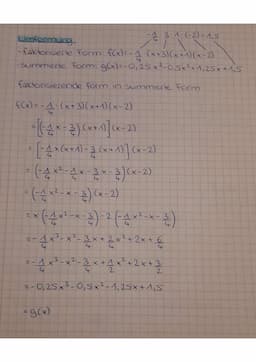 -1/4 · 3 · 1 · (-2) = 1,5
Umformung
- faktorisierte Form: f(x) = -1/4 · (x+3)(x+1)(x-2)
- summierte Form: g(x) = -0,25x³-0,5x²+1,25x+1,5
faktorisierende Form in summierte Form
f(x) = -1/4 · (x+3)(x+1)(x-2)
= [(-1/4 x - 3/4)(x+1)](x-2)
= [-1/4 x(x+1) - 3/4(x+1)](x-2)
= (-1/4 x² - 1/4 x - 3/4 x - 3/4)(x-2)
= (-1/4 x² - x - 3/4)(x-2)
= x(-1/4 x² - x - 3/4) - 2(-1/4 x² - x - 3/4)
= -1/4 x³ - x² - 3/4 x + 2/4 x² + 2x + 6/4
= -1/4 x³ - x² - 3/4 x + 1/2 x² + 2x + 3/2
= -0,25x³ - 0,5x² - 1,25x + 1,5
= g(x)